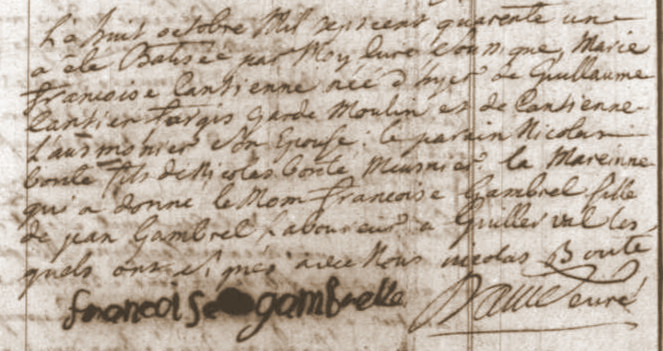 L'a huit octobre Mil sepscent quarente une
a été Batisée par Moy Curé Marie
francoise Cantienne née d'hyer de Guillaume
Cantien forgis garde Moulin et de Cantienne
son Epouse. le parain Nicolas
boute fils de Nicolas boute Meusnier. la Mareinne
qui a donné le Nom francoise Gambrel fille
de jean Gambrel Laboureur a Guillerval les
quels ont signés avec Nous nicolas Boute
francoise gambrelle curé